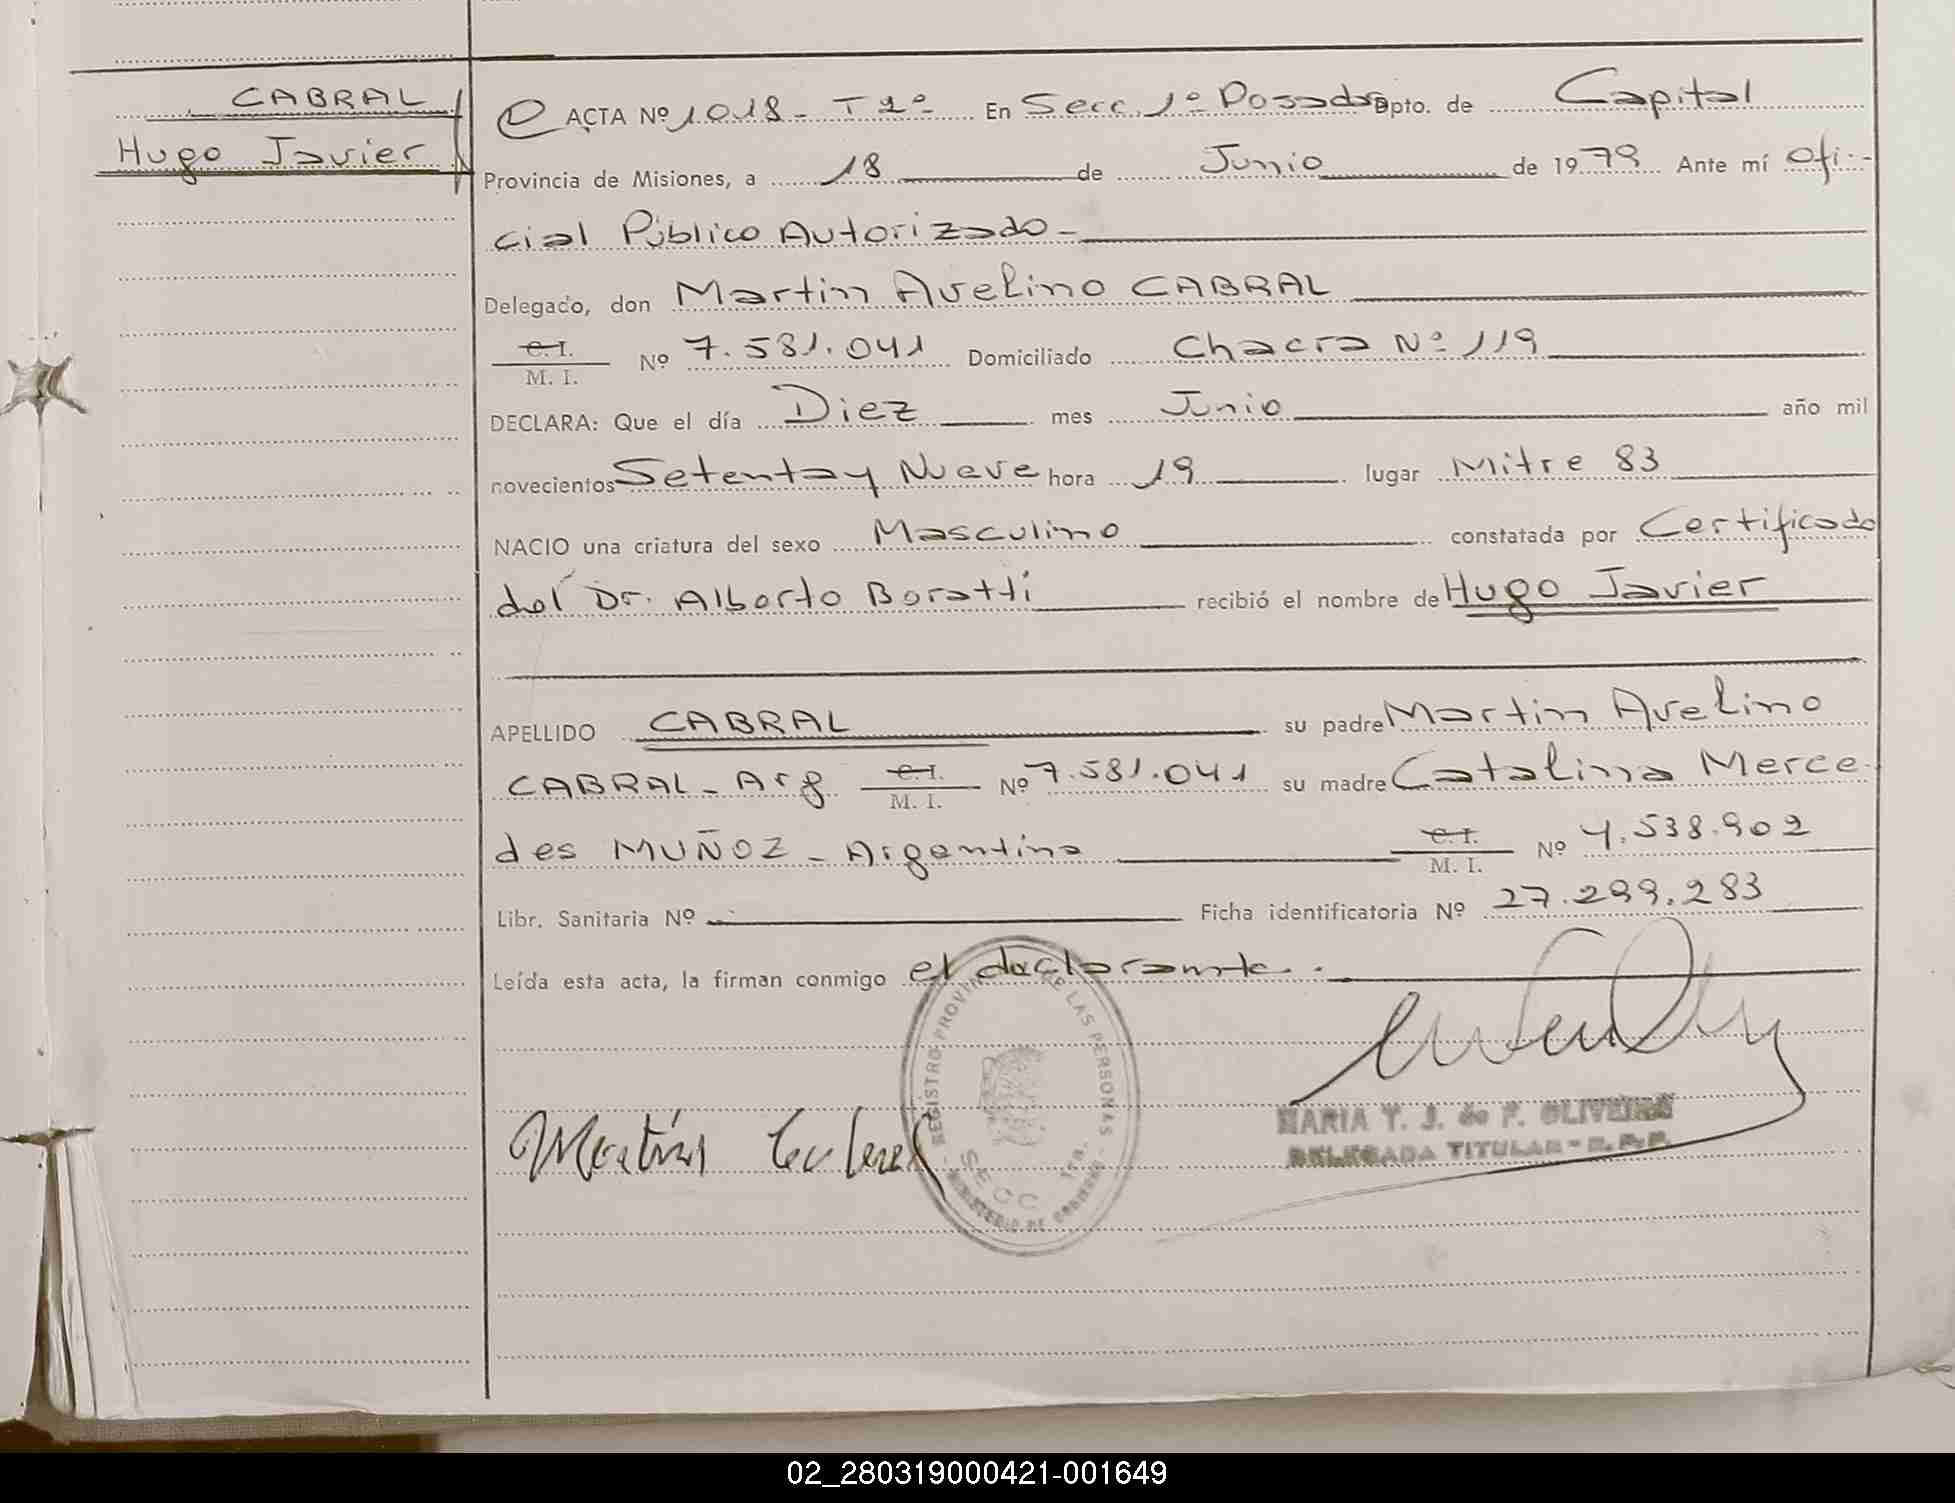 CABRAL
Hugo Javier
ACTA Nº 1018 - T 2º En Secc. 1º Posadas Dpto. de Capital
Provincia de Misiones, a 18 de Junio de 1979 Ante mí Ofi-
cial Público Autorizado -
Delegado, don Martin Avelino CABRAL
C. I.
M. I. Nº 7.581.041 Domiciliado Chacra Nº 119
DECLARA: Que el día Diez mes Junio año mil
novecientos Setenta y Nueve hora 19 lugar Mitre 83
NACIO una criatura del sexo Masculino constatada por Certificado
del Dr. Alberto Boratti recibió el nombre de Hugo Javier
APELLIDO CABRAL su padre Martin Avelino
CABRAL - Arg C. I. M. I. Nº 7.581.041 su madre Catalina Merce
des MUÑOZ - Argentina C. I. M. I. Nº 4.538.902
Libr. Sanitaria Nº Ficha identificatoria Nº 27.299.283
Leída esta acta, la firman conmigo el declarante.
REGISTRO PROVIN DE LAS PERSONAS
SECC 1ra.
MINISTERIO DE GOBIERNO
Martin Cabral
MARIA Y. J. de F. OLIVEIRA
DELEGADA TITULAR - R. P. P.
02_280319000421-001649